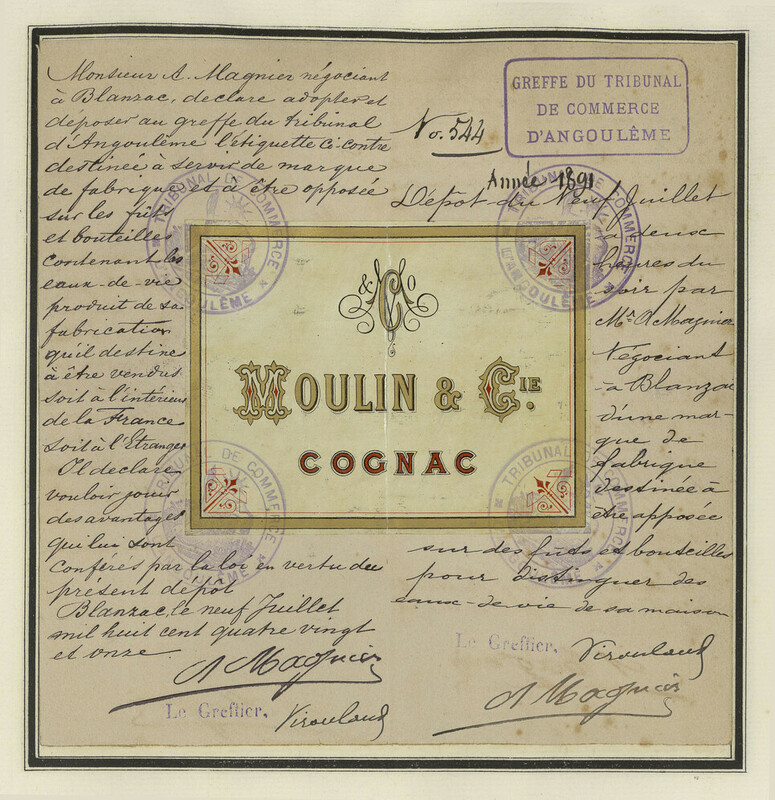 Monsieur A. Magnier négociant
à Blanzac, declare adopter et
déposer au greffe du tribunal
d'Angoulême l'étiquette ci-contre
destinée à servir de marque
de fabrique et à être opposée
sur les fûts
et bouteilles
contenant les
eaux-de-vie
produit de sa
fabrication
qu'il destine
à être vendus
soit à l'intérieur
de la France
soit à l'Etranger
Il declare
vouloir jouir
des avantages
qui lui sont
conférés par la loi en vertu du
présent dépôt
Blanzac, le neuf Juillet
mil huit cent quatre vingt
et onze.
A Magnier
Le Greffier,
GREFFE DU TRIBUNAL
DE COMMERCE
D'ANGOULÊME
No. 544
Année 1891
Dépôt du Neuf Juillet
à deux
heures du
soir par
Mr. A Magnier
Négociant
à Blanzac
d'une mar-
que de
fabrique
destinée à
être apposée
sur des futs et bouteilles
pour distinguer des
eaux-de-vie de sa maison
Le Greffier,
A Magnier
TRIBUNAL DE COMMERCE
D'ANGOULÊME
TRIBUNAL DE COMMERCE
D'ANGOULÊME
& Co
MOULIN & CIE.
COGNAC
TRIBUNAL DE COMMERCE
ANGOULÊME
TRIBUNAL